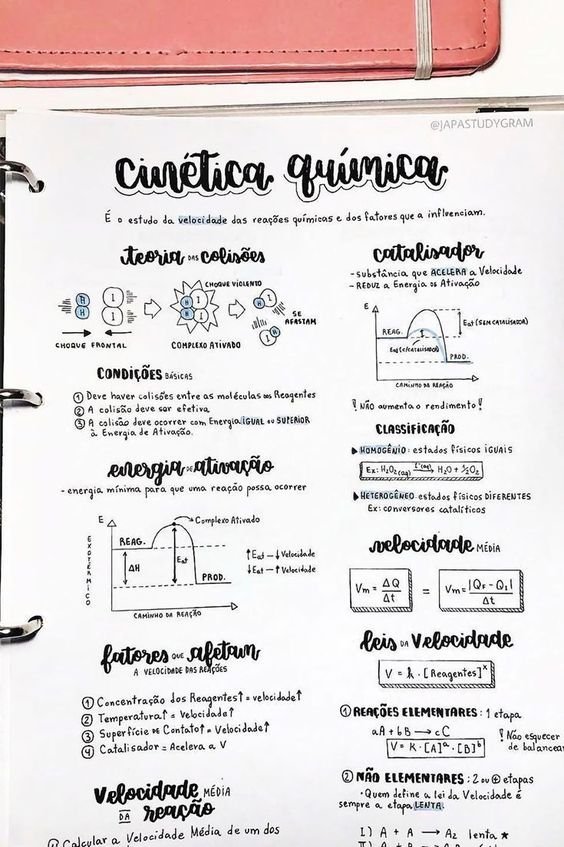 @JAPASTUDYGRAM
cinética química
É o estudo da velocidade das reações químicas e dos fatores que a influenciam.
teoria DAS colisões
CHOQUE VIOLENTO
H I
H I
H I
H I
H I
H I
SE
AFASTAM
CHOQUE FRONTAL
COMPLEXO ATIVADO
CONDIÇÕES BÁSICAS
① Deve haver colisões entre as moléculas dos Reagentes
② A colisão deve ser efetiva
③ A colisão deve ocorrer com Energia IGUAL ou SUPERIOR
à Energia de Ativação.
energia DE ativação
- energia mínima para que uma reação possa ocorrer
E
Complexo Ativado
EXOTÉRMICO
REAG.
ΔH
Eat
PROD.
CAMINHO DA REAÇÃO
↑Eat - ↓ Velocidade
↓Eat - ↑ Velocidade
fatores QUE afetam
A VELOCIDADE DAS REAÇÕES
① Concentração dos Reagentes↑ = velocidade↑
② Temperatura↑ = Velocidade↑
③ Superfície de Contato↑ = Velocidade↑
④ Catalisador = Acelera a V
Velocidade MÉDIA
DA reação
① Calcular a Velocidade Média de um dos
catalisador
- substância que ACELERA a Velocidade
- REDUZ a Energia de Ativação
E
REAG.
Eat (SEM CATALISADOR)
Eat (c/CATALISADOR)
PROD.
CAMINHO DA REAÇÃO
! NÃO aumenta o rendimento !
CLASSIFICAÇÃO
▶ HOMOGÊNIO: estados físicos IGUAIS
Ex: H₂O₂(aq) I⁻(aq)→ H₂O + ½O₂
▶ HETEROGÊNEO: estados físicos DIFERENTES
Ex: conversores catalíticos
velocidade MÉDIA
Vm = ΔQ/Δt = Vm = |QF - QI|/Δt
leis DA Velocidade
V = k · [Reagentes]ˣ
① REAÇÕES ELEMENTARES: 1 etapa
aA + bB → cC
V = K · [A]ᵃ · [B]ᵇ
! Não esquecer
de balancear
② NÃO ELEMENTARES: 2 ou ⊕ etapas
· Quem define a lei da Velocidade é
sempre a etapa LENTA.
I) A + A → A₂ lenta ★